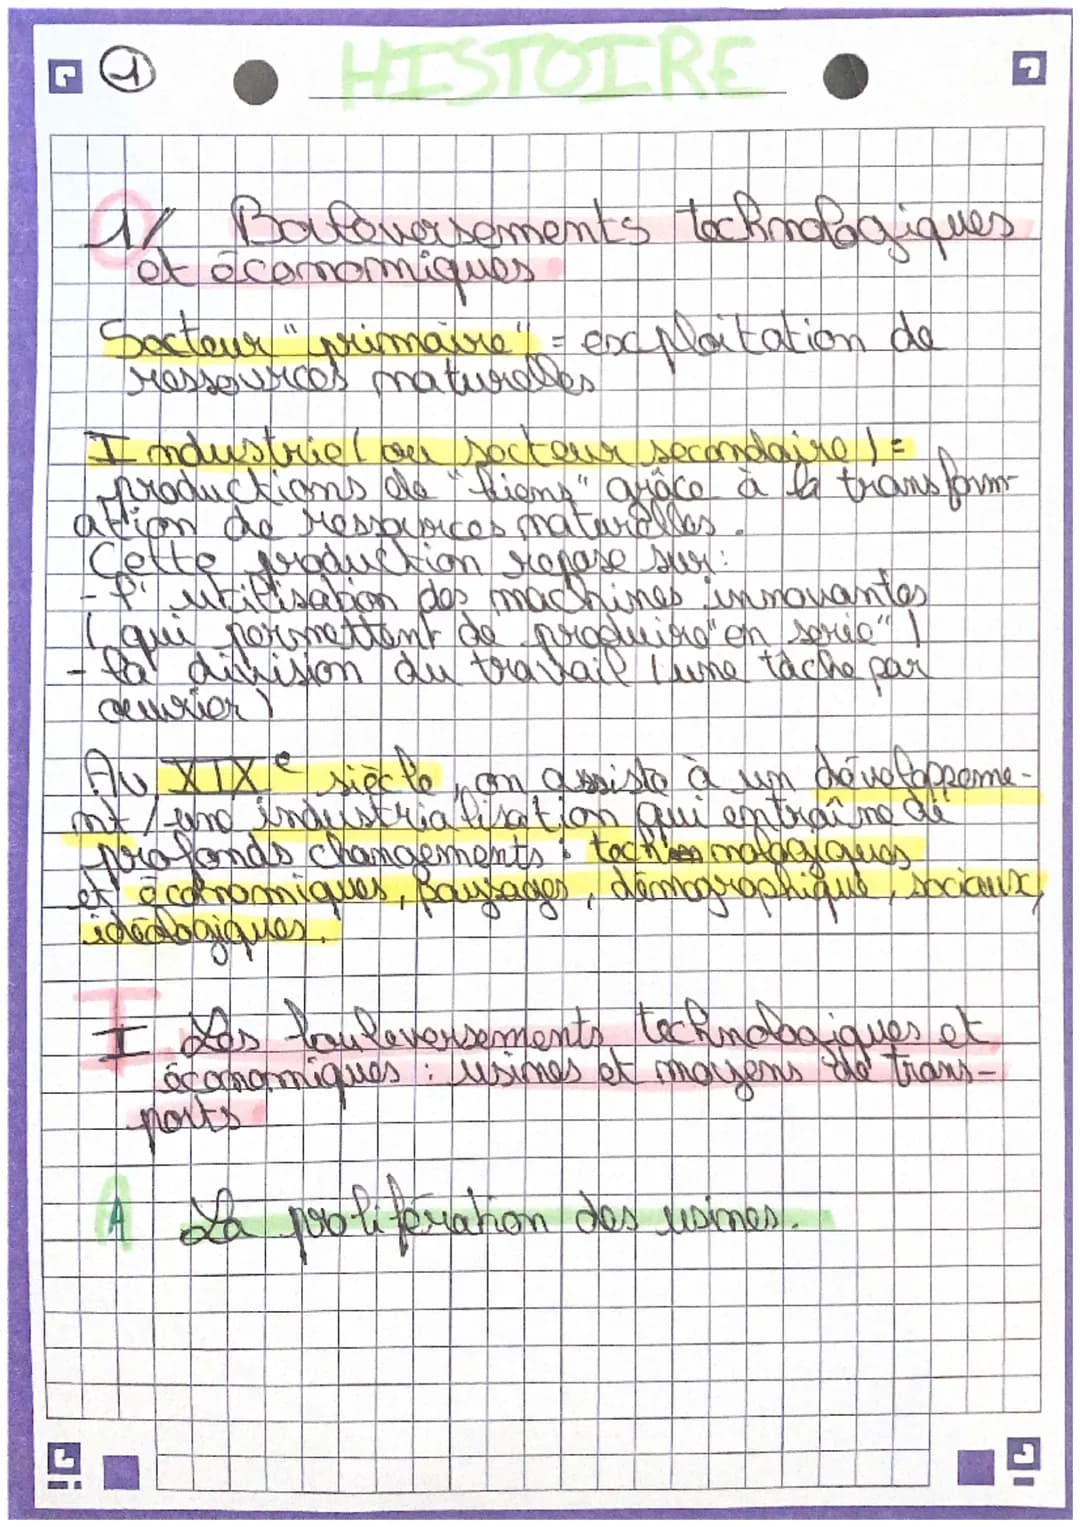 1
HISTOIRE
1/ Bouleversements technologiques
et économiques
Secteur "primaire" = exploitation de
ressources naturelles
Industrie (ou secteur secondaire) =
productions de "biens" grâce à la transform-
ation de ressources naturelles.
Cette production repose sur:
- l'utilisation des machines innovantes
(qui permettent de produire "en série")
- la division du travail (une tâche par
ouvrier)
Au XIXe siècle, on assiste à un développeme-
nt / une industrialisation qui entraîne de
profonds changements : technologiques
et économiques, paysages, démographique, sociaux,
idéologiques.
I Les bouleversements technologiques et
économiques : usines et moyens de trans-
ports
A La prolifération des usines.